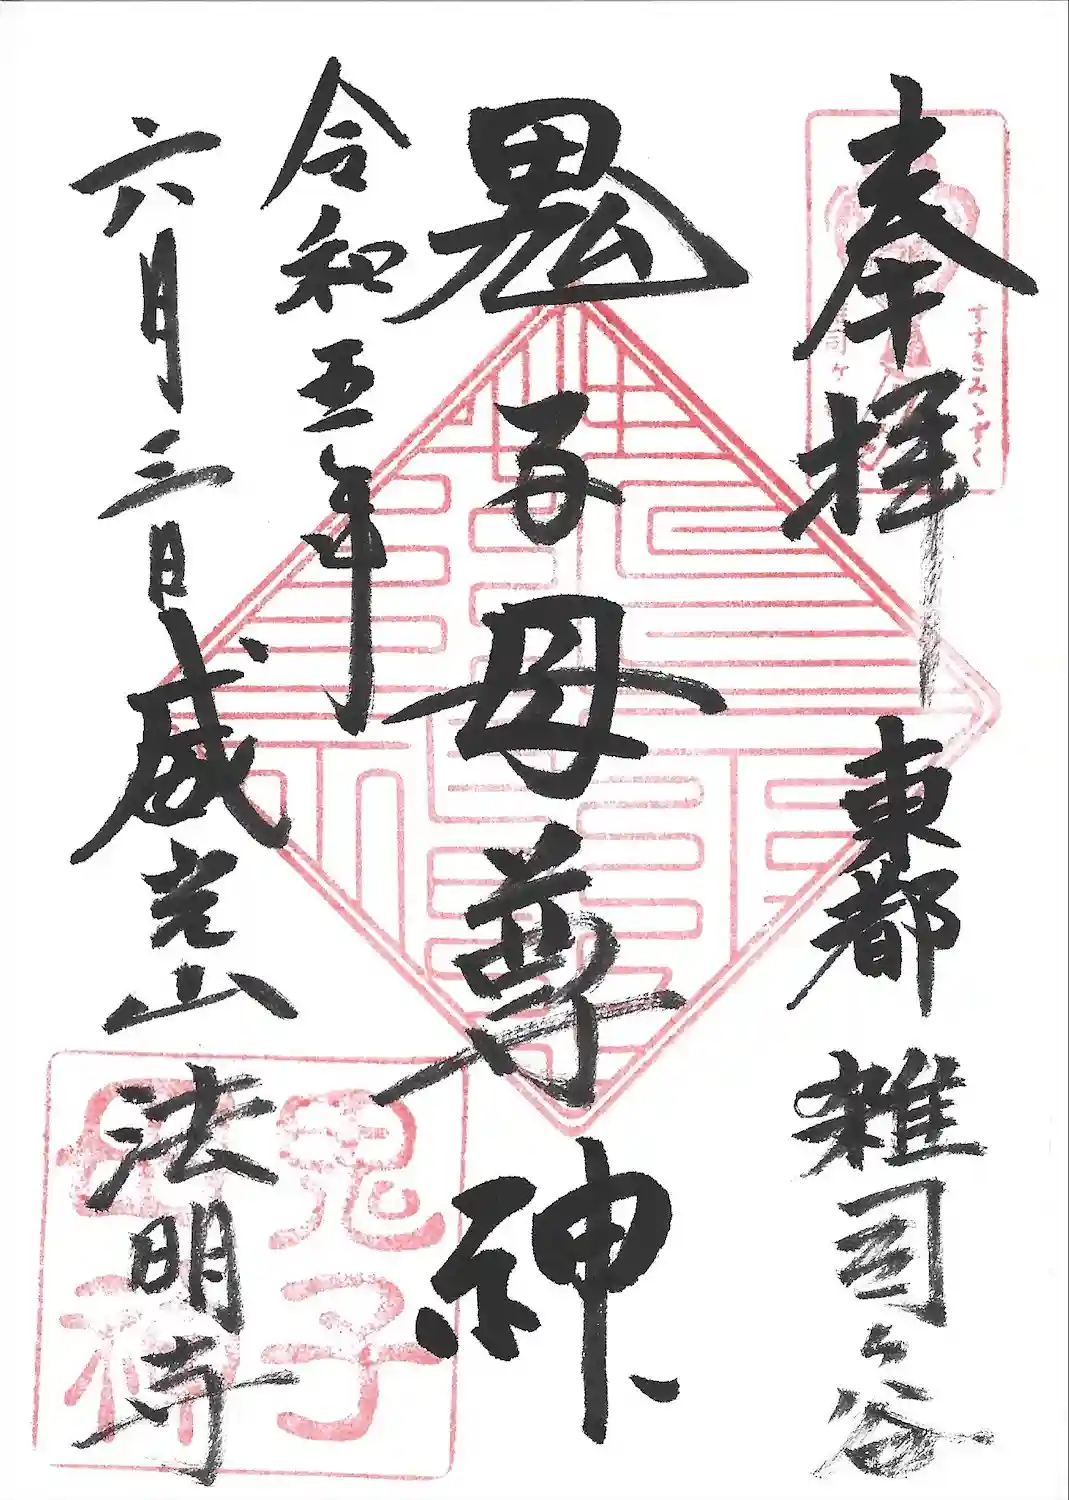 奉拝
東都
雑司ヶ谷
鬼子母尊神
令和五年
六月三日
威光山
法明寺
すすきみゝずく
司ヶ
鬼子
母神